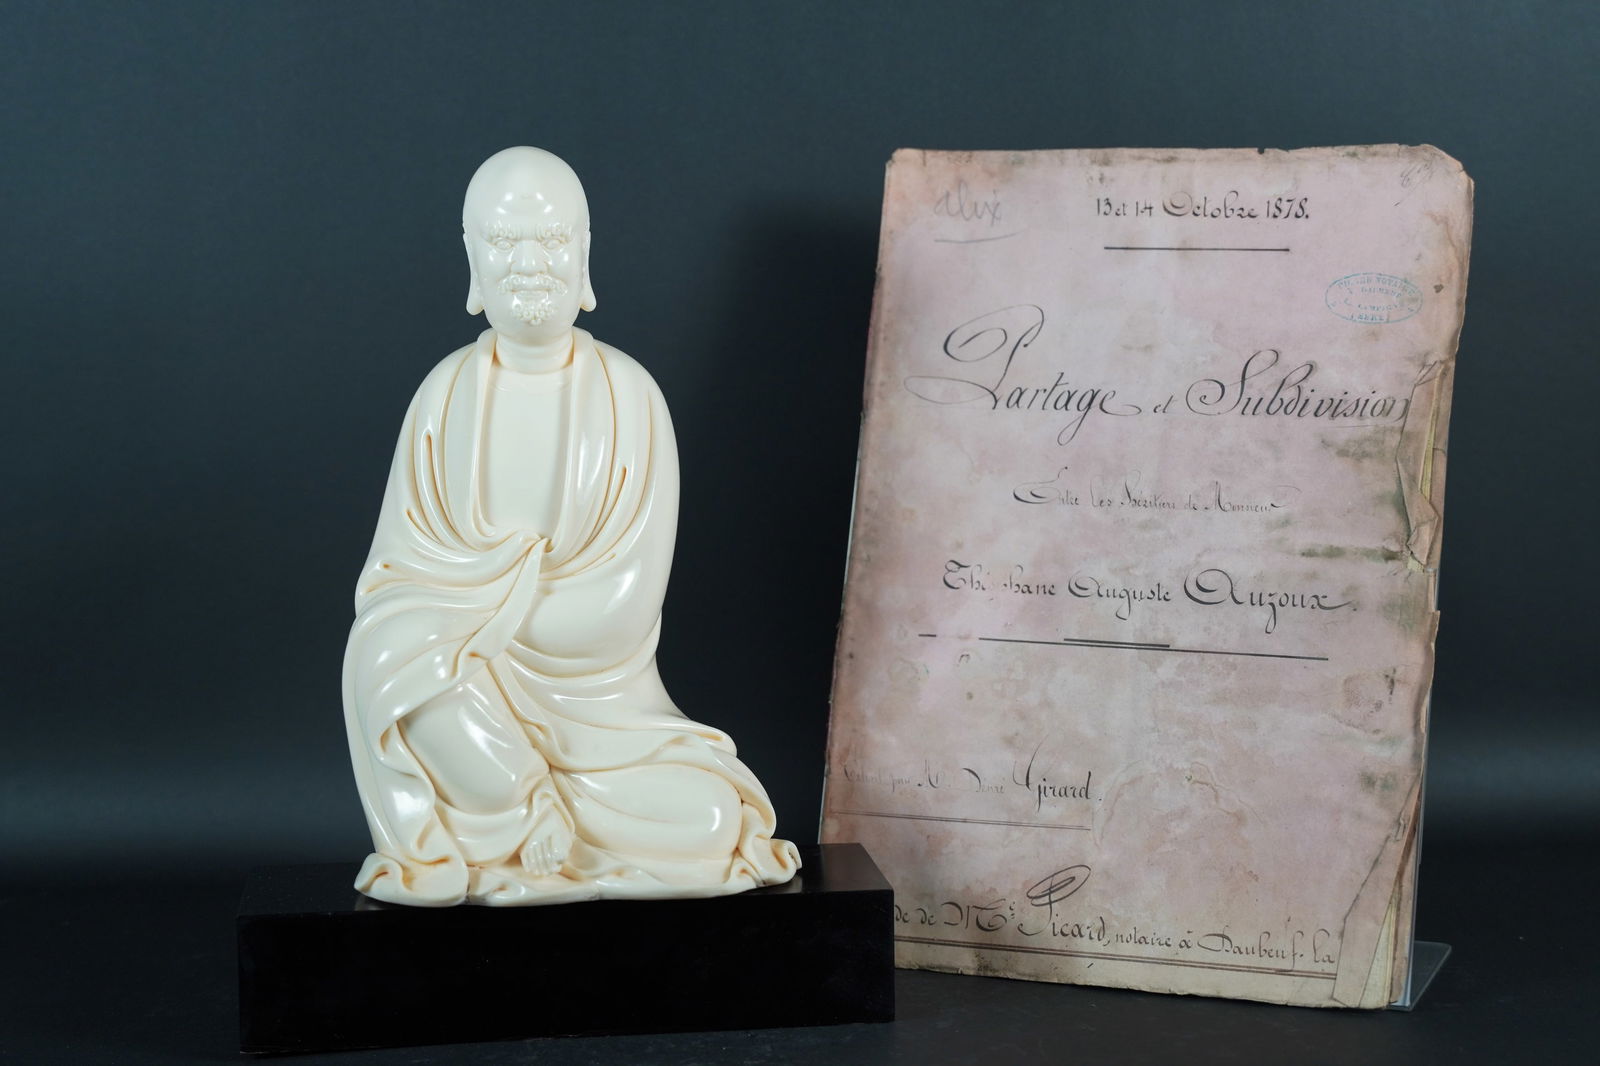 alix
13 et 14 Octobre 1878.
Partage et Subdivision
Entre les héritiers de Monsieur
Thé phane Auguste Auzoux.
par M. Girard.
de de Me Picard, notaire à Daubeuf-la